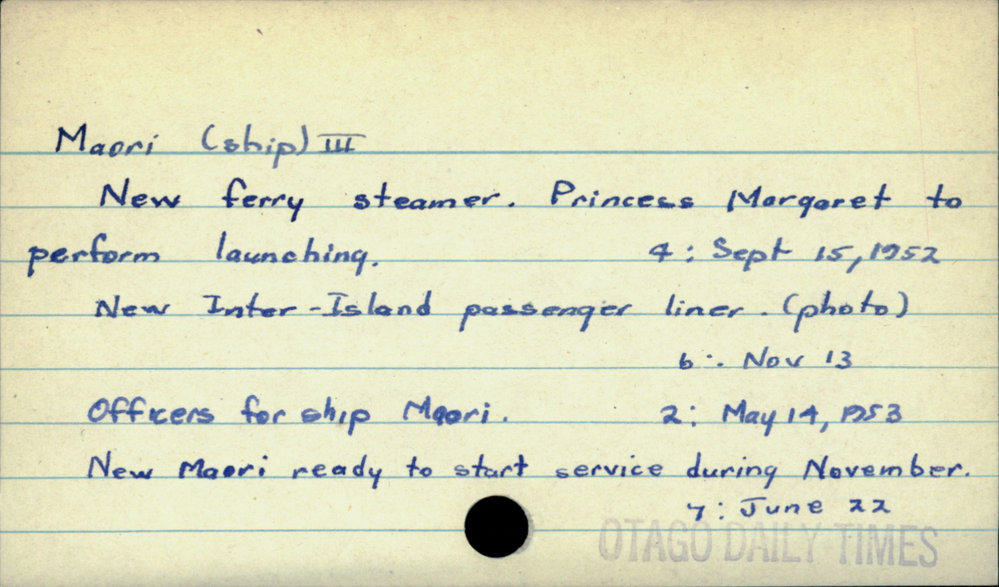 Maori (ship) III
New ferry steamer. Princess Margaret to
perform launching. 4: Sept 15, 1952
New Inter-Island passenger liner. (photo)
6: Nov 13
Officers for ship Maori. 2: May 14, 1953
New Maori ready to start service during November.
7: June 22
OTAGO DAILY TIMES